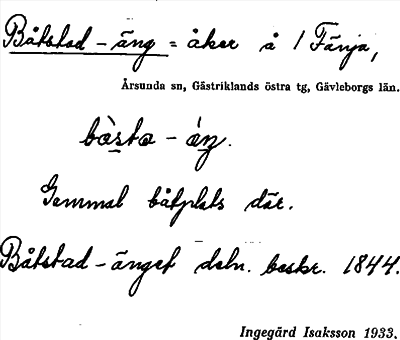 Båtstad-äng = åker å / Fänja,
Årsunda sn, Gästriklands östra tg, Gävleborgs län.
bòsta-áŋ.
Gammal båtplats där.
Båtstad-änget deln. beskr. 1844.
Ingegärd Isaksson 1933.